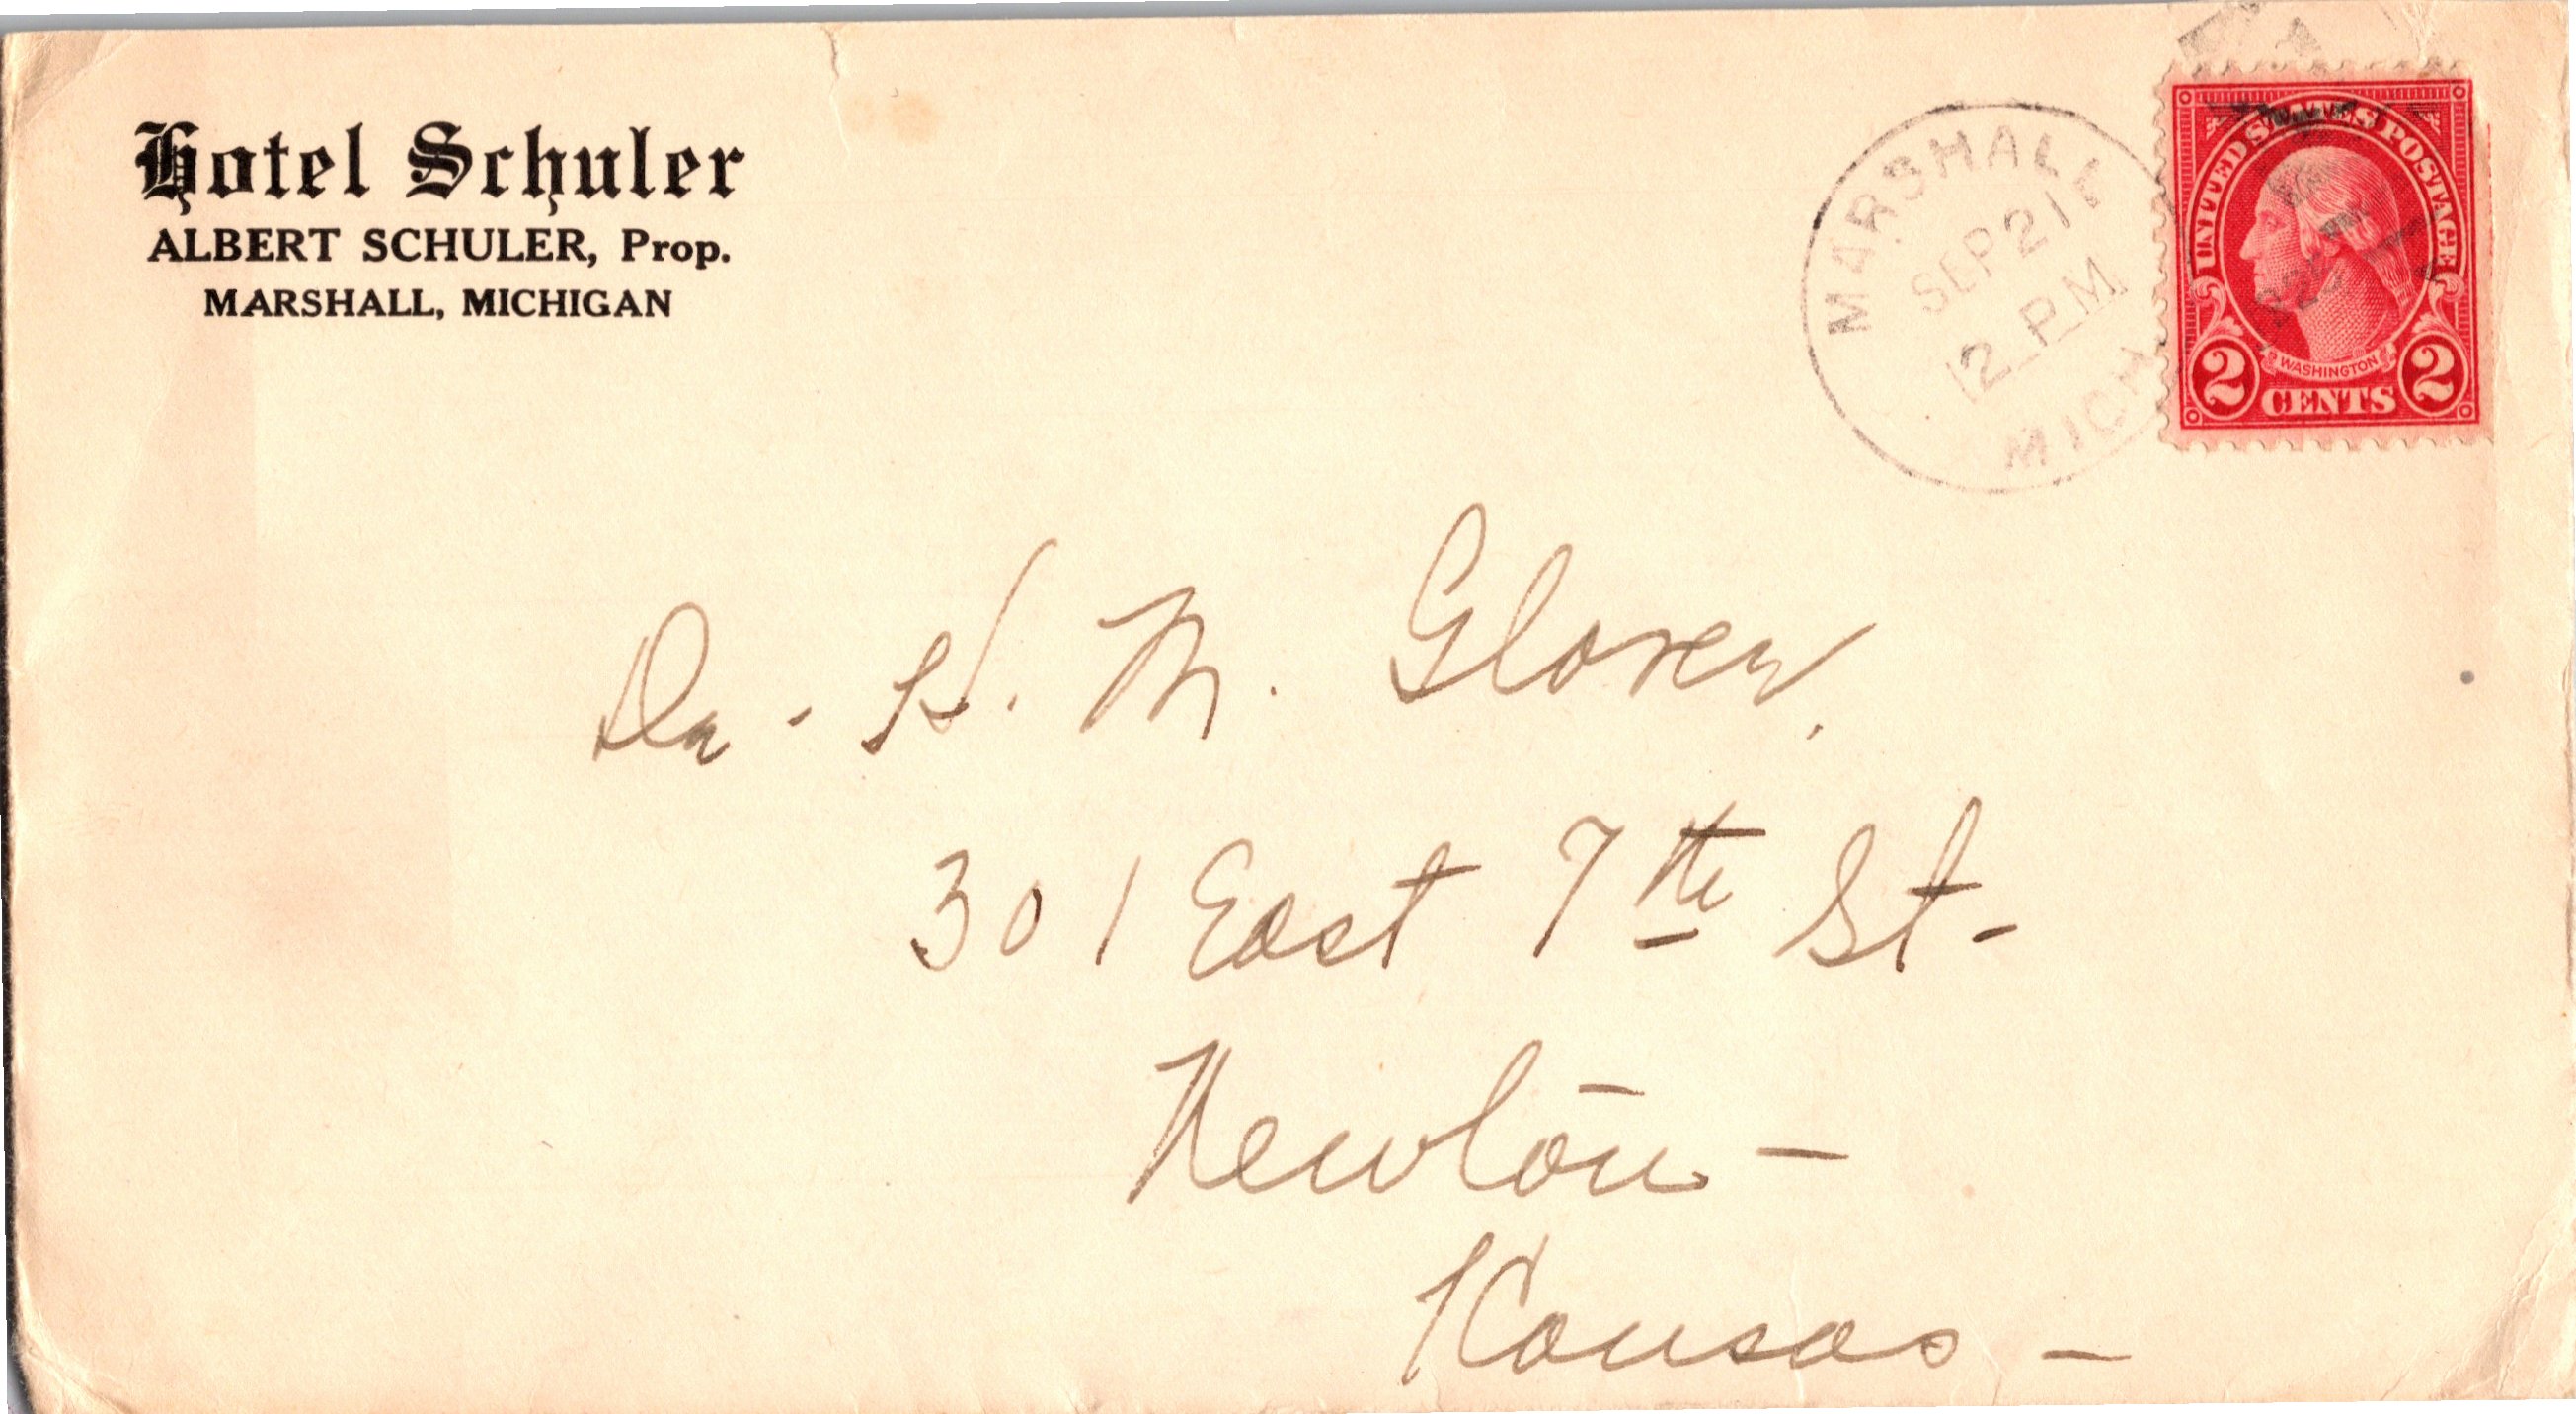 Hotel Schuler
ALBERT SCHULER, Prop.
MARSHALL, MICHIGAN
MARSHALL
SEP 21
12 PM
MICH
UNITED STATES POSTAGE
WASHINGTON
2 CENTS 2
Dr. H. M. Glover,
301 East 7th St-
Newton -
Kansas -